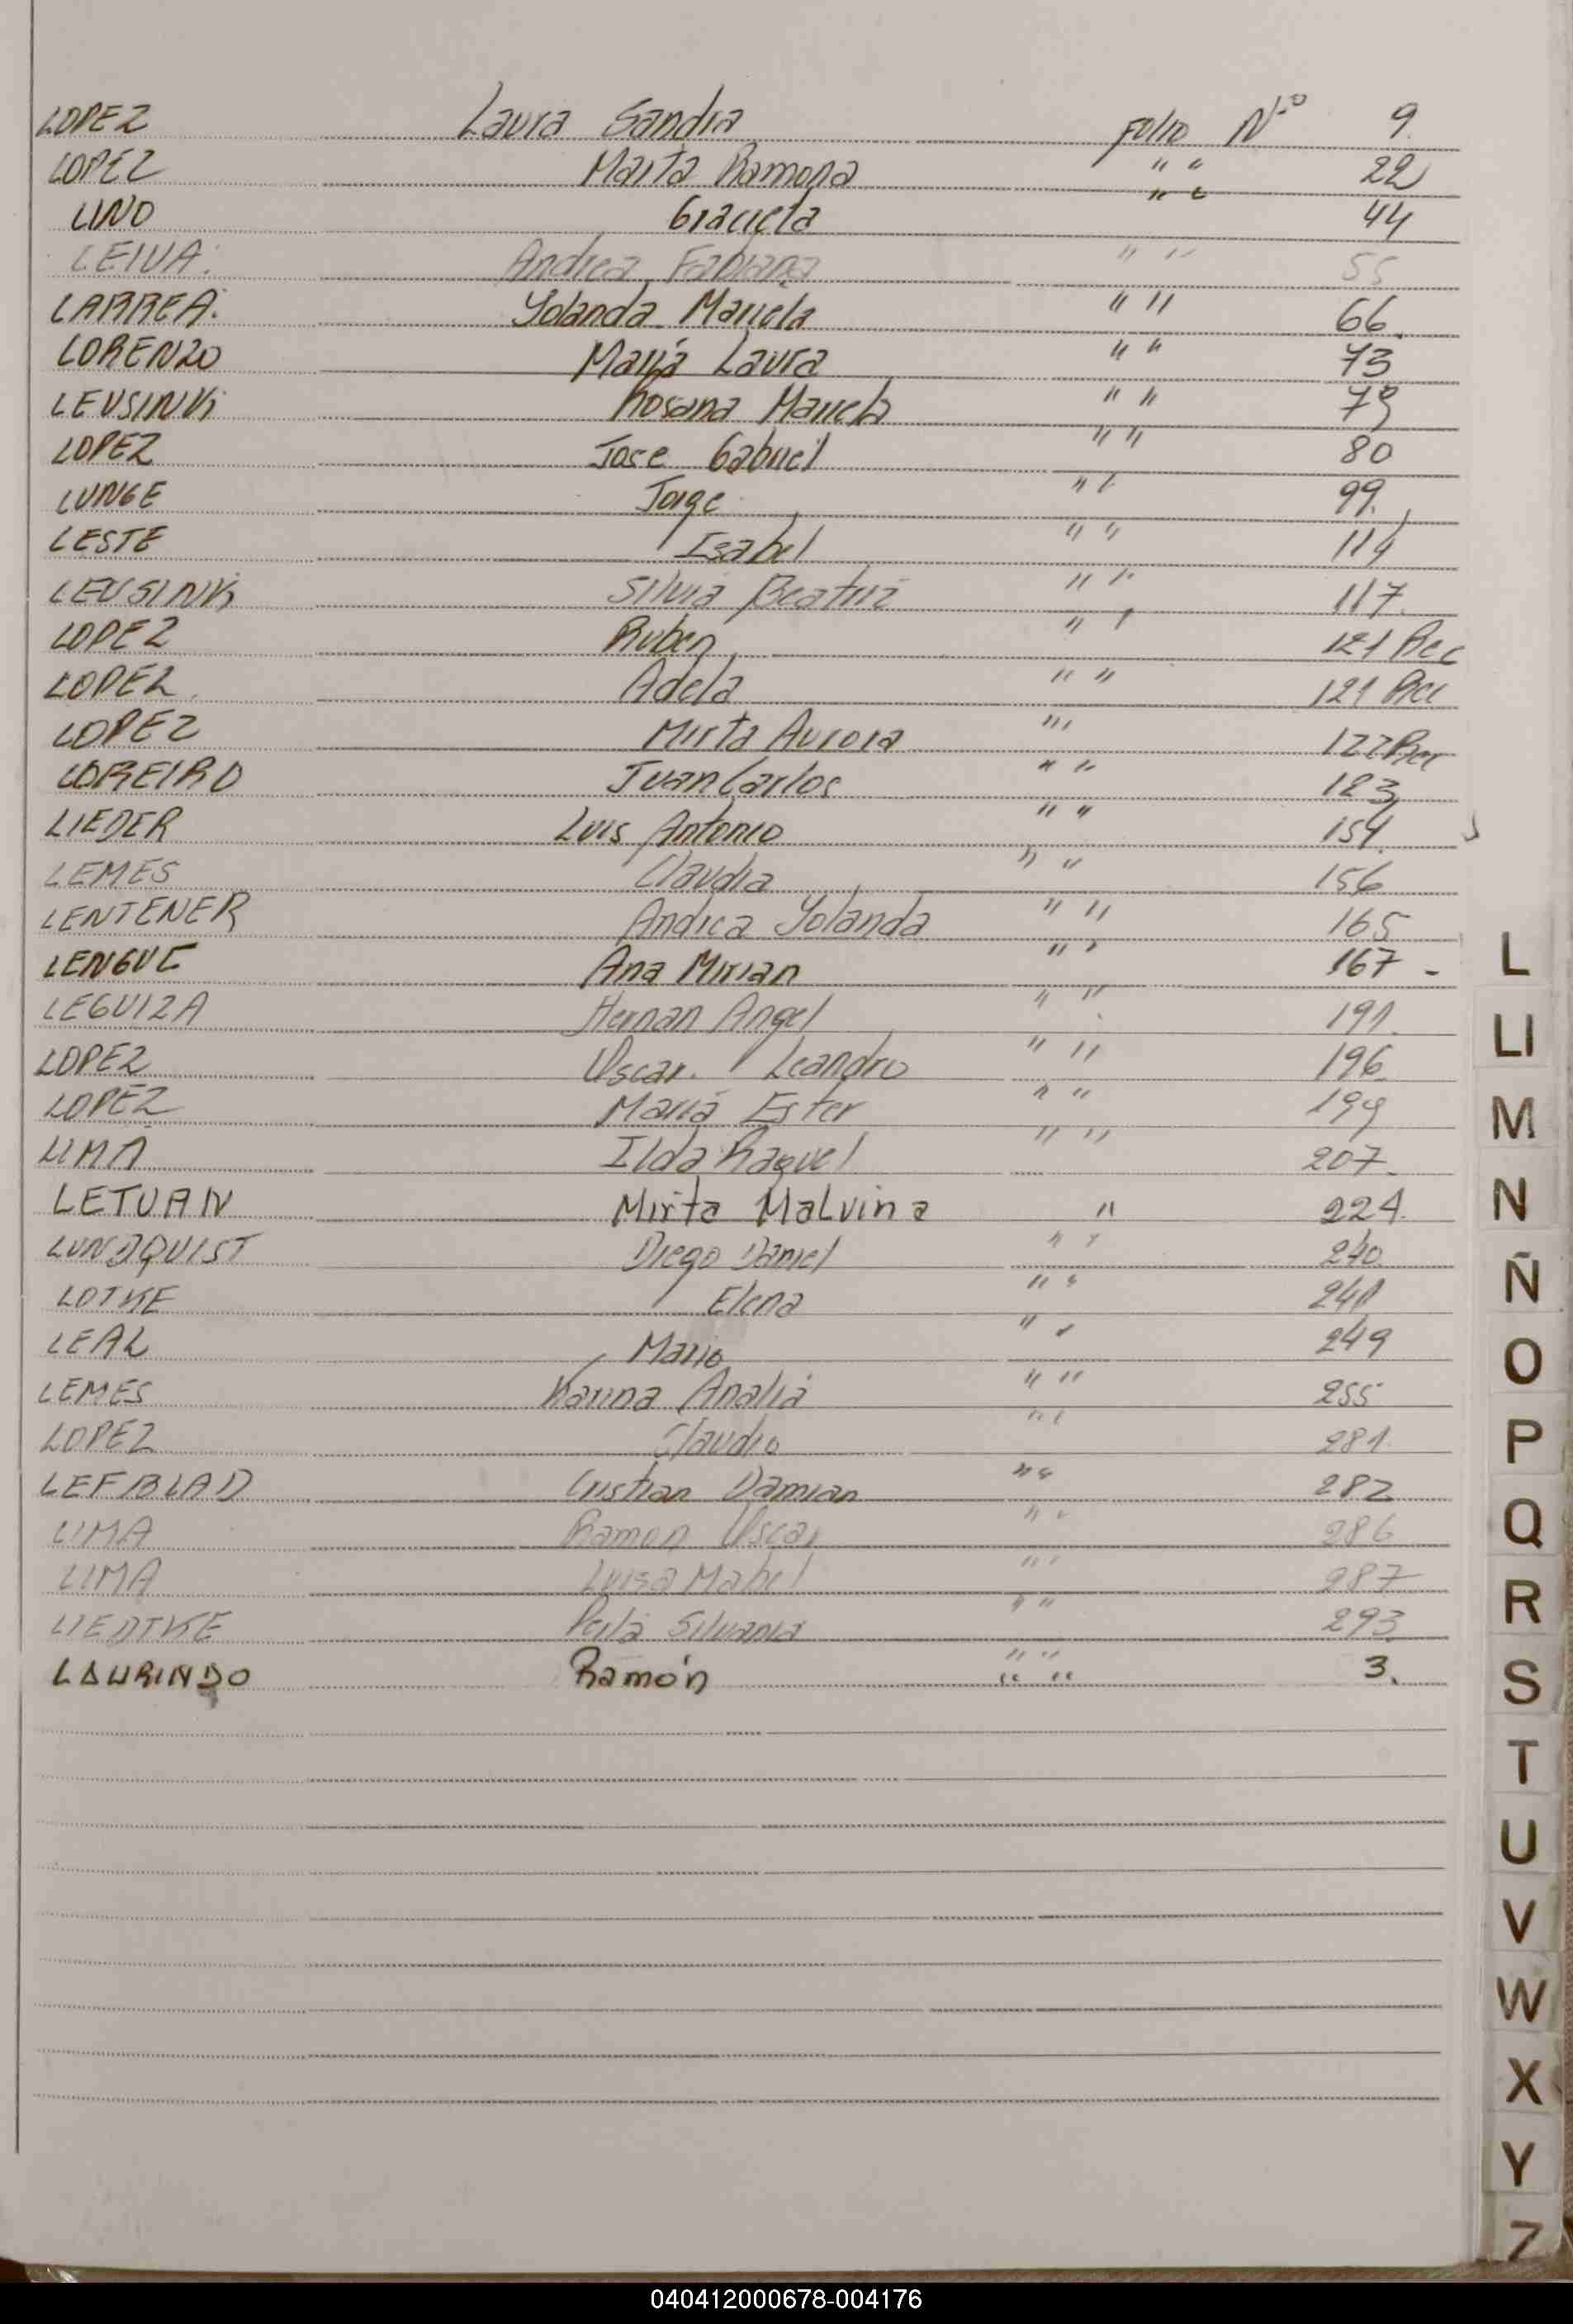 LOPEZ Laura Sandra Folio Nº 9.
LOPEZ Marta Ramona " " 22
LINO Graciela " " 44
LEIVA. Andrea Fabiana " " 55
LARREA. Yolanda Mariela " " 66.
LORENZO María Laura " " 73
LEUSINKi Rosana Mariela " " 79
LOPEZ Jose Gabriel " " 80
LUNGE Jorge " " 99.
LESTE Isabel " " 114
LEUSINKi Silvia Beatriz " " 117.
LOPEZ Ruben " " 121 Rec
LOPEZ. Adela " " 121 Rec
LOPEZ Mirta Aurora " 122 Rec
LOREIRO Juan Carlos " " 123
LIEDER Luis Antonio " " 154.
LEMES Claudia " " 156
LENTENER Andrea Yolanda " " 165
LENGUE Ana Mirian " " 167 -
LEGUIZA Hernan Angel " " 191.
LOPEZ Oscar. Leandro " " 196
LOPEZ María Ester " " 199
LIMA Ilda Raquel " " 207.
LETUAN Mirta Malvina " 224.
LUNDQUIST Diego Daniel " " 240.
LOTKE Elena " " 241
LEAL Mario " " 249
LEMES Karina Analia " " 255
LOPEZ Claudio " " 281
LEFBLAD Cristian Damian " " 282
LIMA Ramon Oscar " " 286
LIMA Luisa Mabel " " 287
LIEDTKE Perla Silvania " " 293
LAURINDO Ramón " " 3.
L
Ll
M
N
Ñ
O
P
Q
R
S
T
U
V
W
X
Y
Z
040412000678-004176